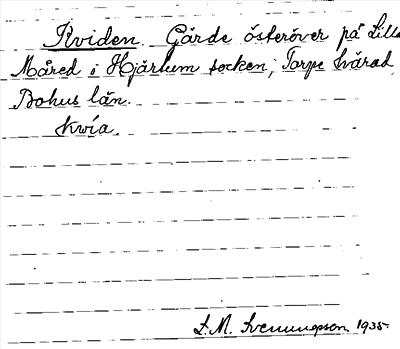 Kviden. Gärde österöver på Lilla
Måred i Hjärtum socken; Torpe härad,
Bohus län.
Kvía.
L. M. Svenungsson 1935.